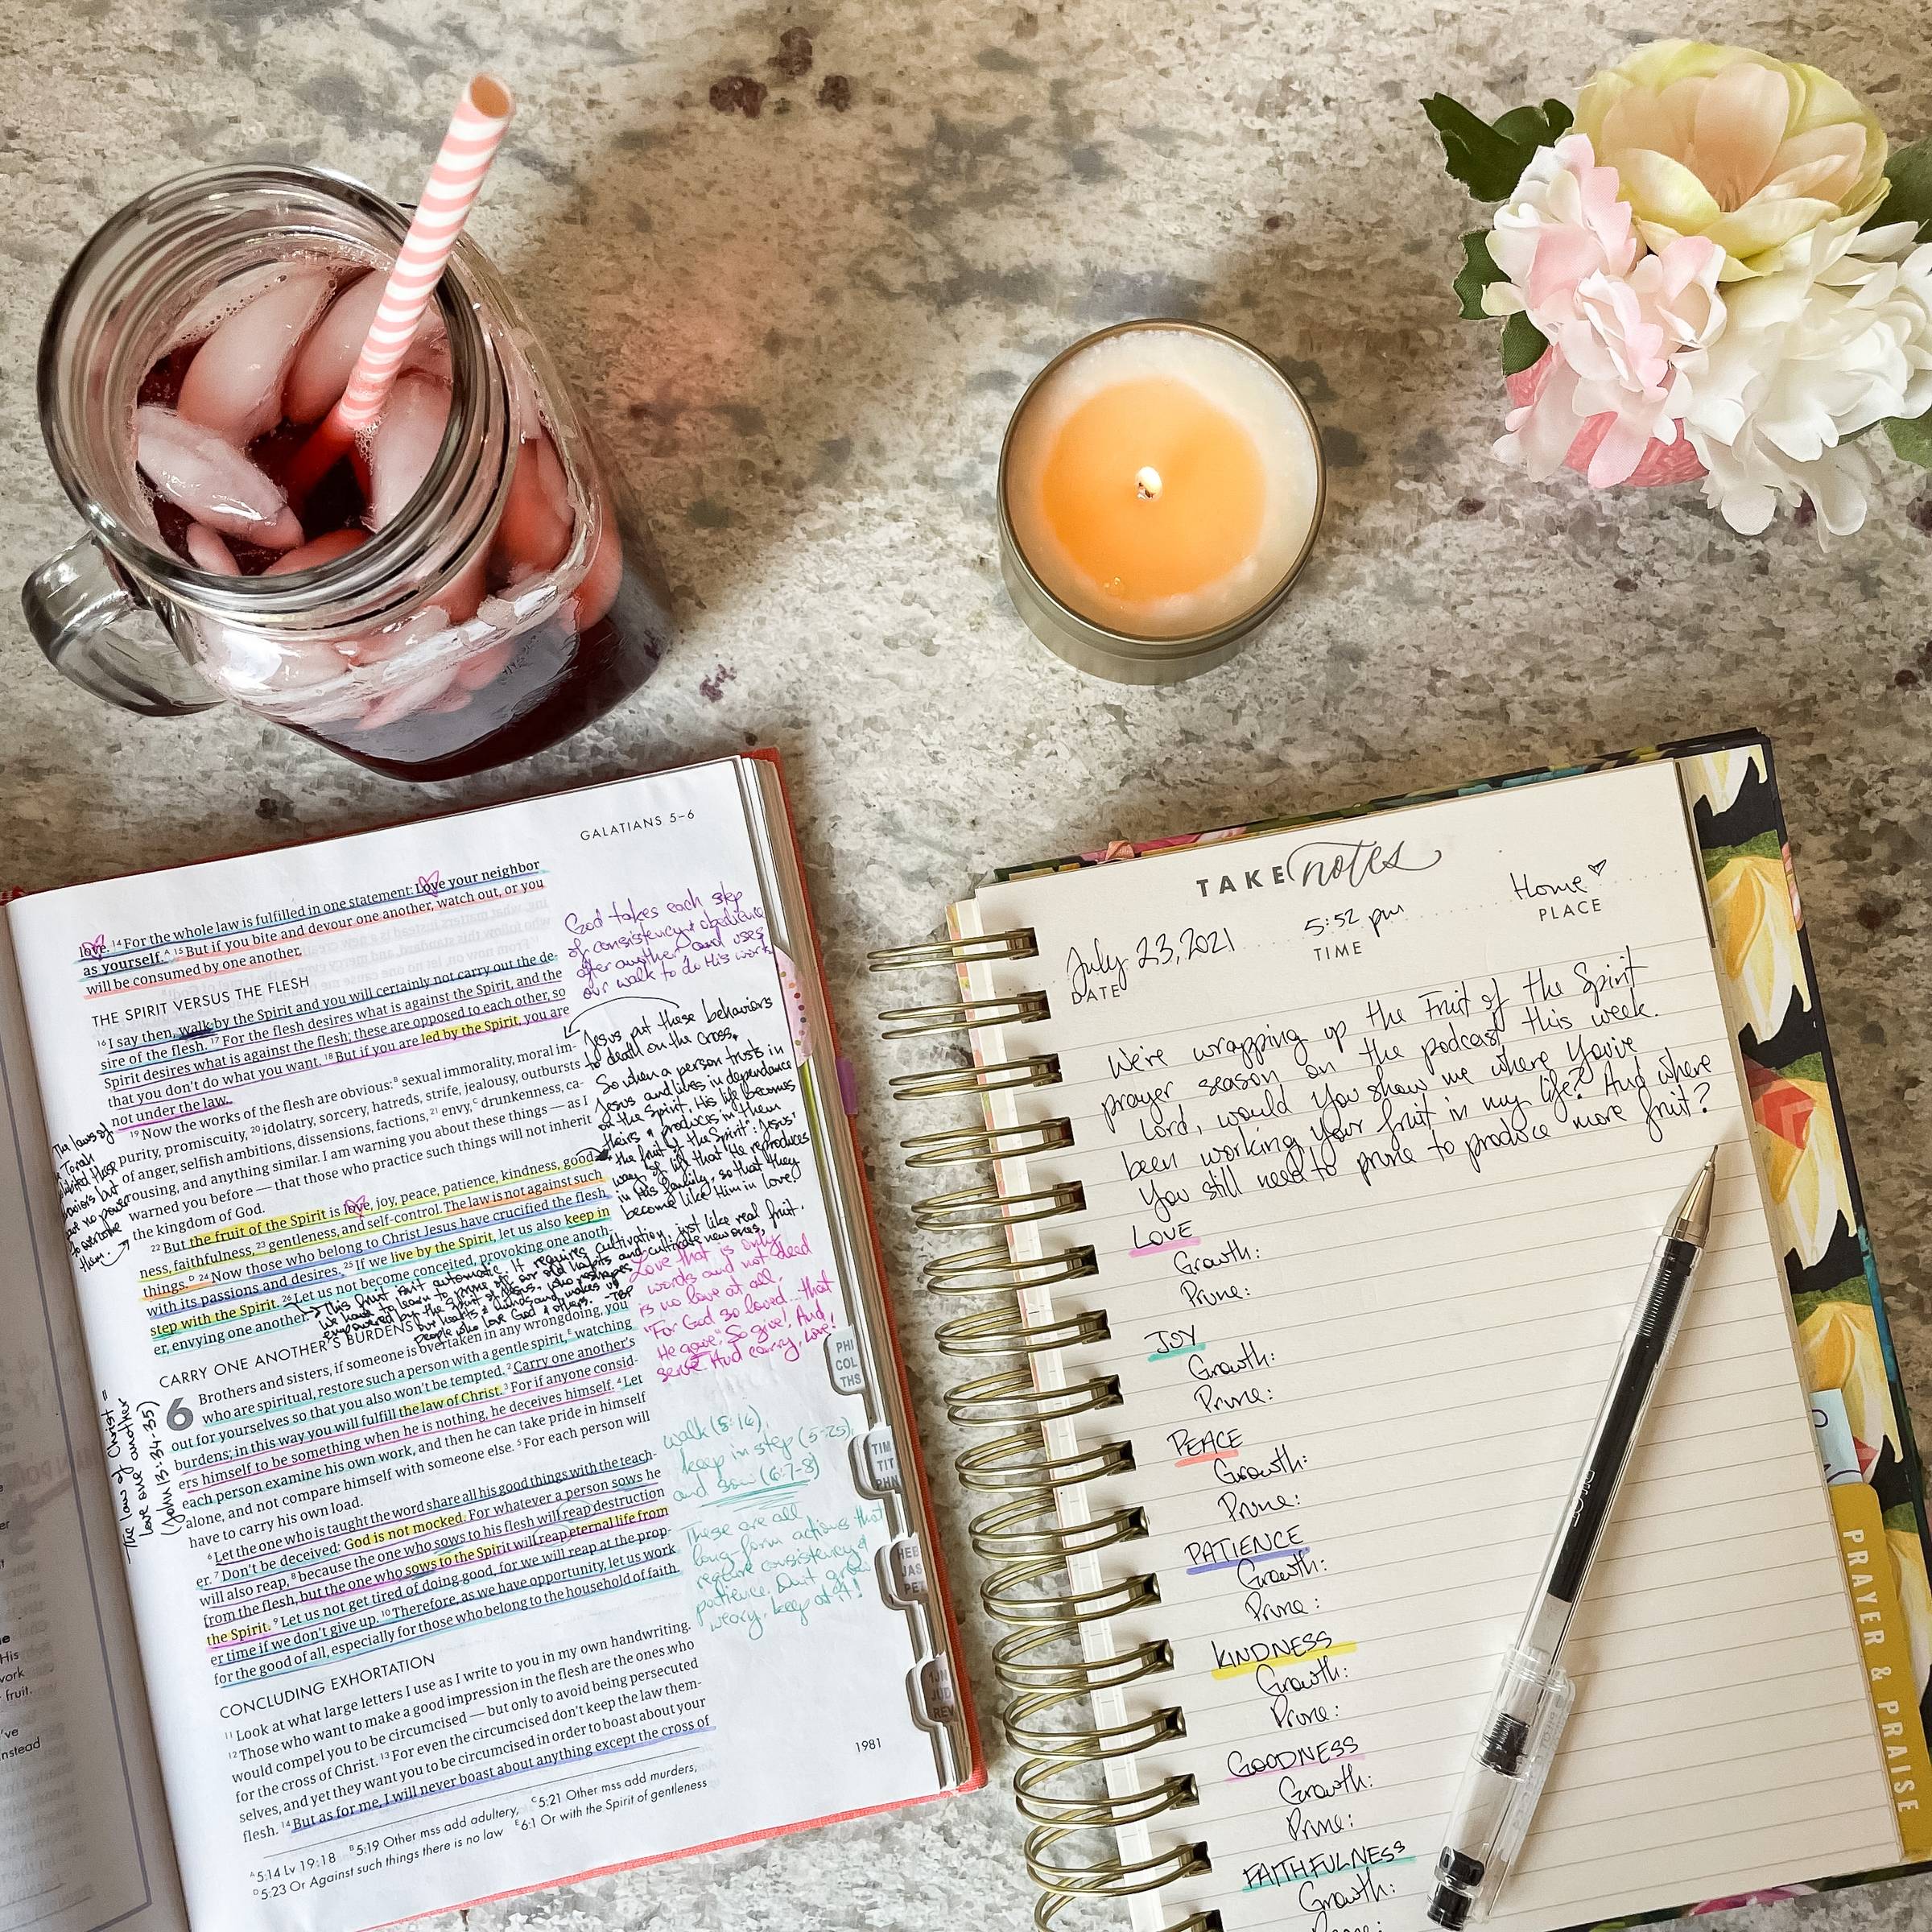 GALATIANS 5–6
love. 14 For the whole law is fulfilled in one statement: Love your neighbor
as yourself. A 15 But if you bite and devour one another, watch out, or you
will be consumed by one another.
THE SPIRIT VERSUS THE FLESH
16 I say then, walk by the Spirit and you will certainly not carry out the de-
sire of the flesh. 17 For the flesh desires what is against the Spirit, and the
Spirit desires what is against the flesh; these are opposed to each other, so
that you don't do what you want. 18 But if you are led by the Spirit, you are
not under the law.
19 Now the works of the flesh are obvious: B sexual immorality, moral im-
purity, promiscuity, 20 idolatry, sorcery, hatreds, strife, jealousy, outbursts
of anger, selfish ambitions, dissensions, factions, 21 envy, C drunkenness, ca-
rousing, and anything similar. I am warning you about these things — as I
warned you before — that those who practice such things will not inherit
the kingdom of God.
22 But the fruit of the Spirit is love, joy, peace, patience, kindness, good-
ness, faithfulness, 23 gentleness, and self-control. The law is not against such
things. D 24 Now those who belong to Christ Jesus have crucified the flesh
with its passions and desires. 25 If we live by the Spirit, let us also keep in
step with the Spirit. 26 Let us not become conceited, provoking one anoth-
er, envying one another.
CARRY ONE ANOTHER'S BURDENS
6 Brothers and sisters, if someone is overtaken in any wrongdoing, you
who are spiritual, restore such a person with a gentle spirit, E watching
out for yourselves so that you also won't be tempted. 2 Carry one another's
burdens; in this way you will fulfill the law of Christ. 3 For if anyone consid-
ers himself to be something when he is nothing, he deceives himself. 4 Let
each person examine his own work, and then he can take pride in himself
alone, and not compare himself with someone else. 5 For each person will
have to carry his own load.
6 Let the one who is taught the word share all his good things with the teach-
er. 7 Don't be deceived: God is not mocked. For whatever a person sows he
will also reap, 8 because the one who sows to his flesh will reap destruction
from the flesh, but the one who sows to the Spirit will reap eternal life from
the Spirit. 9 Let us not get tired of doing good, for we will reap at the prop-
er time if we don't give up. 10 Therefore, as we have opportunity, let us work
for the good of all, especially for those who belong to the household of faith.
CONCLUDING EXHORTATION
11 Look at what large letters I use as I write to you in my own handwriting.
12 Those who want to make a good impression in the flesh are the ones who
would compel you to be circumcised — but only to avoid being persecuted
for the cross of Christ. 13 For even the circumcised don't keep the law them-
selves, and yet they want you to be circumcised in order to boast about your
flesh. 14 But as for me, I will never boast about anything except the cross of
A 5:14 Lv 19:18 B 5:19 Other mss add adultery, C 5:21 Other mss add murders,
D 5:23 Or Against such things there is no law E 6:1 Or with the Spirit of gentleness
1981
God takes each step
of consistency & obedience
after another and uses
our walk to do His work
Jesus put these behaviors
to death on the cross.
So when a person trusts in
Jesus and lives in dependence
on the Spirit, His life becomes
theirs & produces in them
the "fruit of the Spirit": Jesus'
way of life that He reproduces
in His family, so that they
become like Him in love!
This fruit isn't automatic. It requires cultivation: just like real fruit.
We have to learn to prune off our old habits and cultivate new ones,
empowered by the Spirit of Jesus, who reshapes
our hearts & minds and makes us
people who love God & others. -TBP
Love that is only
words and not deed
is no love at all.
"For God so loved...that
He gave." So give! And
serve. And carry. Love!
walk (5:16),
keep in step (5:25),
and sow (6:7-8)
These are all
long-form actions that
require consistency &
patience. Don't grow
weary. Keep at it!
them.
The law of Christ =
love one another
(John 13:34-35)
PHI
COL
THS
TIM
TIT
PHN
HEB
JAS
PET
1JN
JUD
REV
TAKE notes
July 23, 2021
DATE
5:52 pm
TIME
Home
PLACE
We're wrapping up the Fruit of the Spirit
prayer season on the podcast this week.
Lord, would You show me where You've
been working Your fruit in my life? And where
You still need to prune to produce more fruit?
LOVE
Growth:
Prune:
JOY
Growth:
Prune:
PEACE
Growth:
Prune:
PATIENCE
Growth:
Prune:
KINDNESS
Growth:
Prune:
GOODNESS
Growth:
Prune:
FAITHFULNESS
Growth:
Prune:
PRAYER & PRAISE